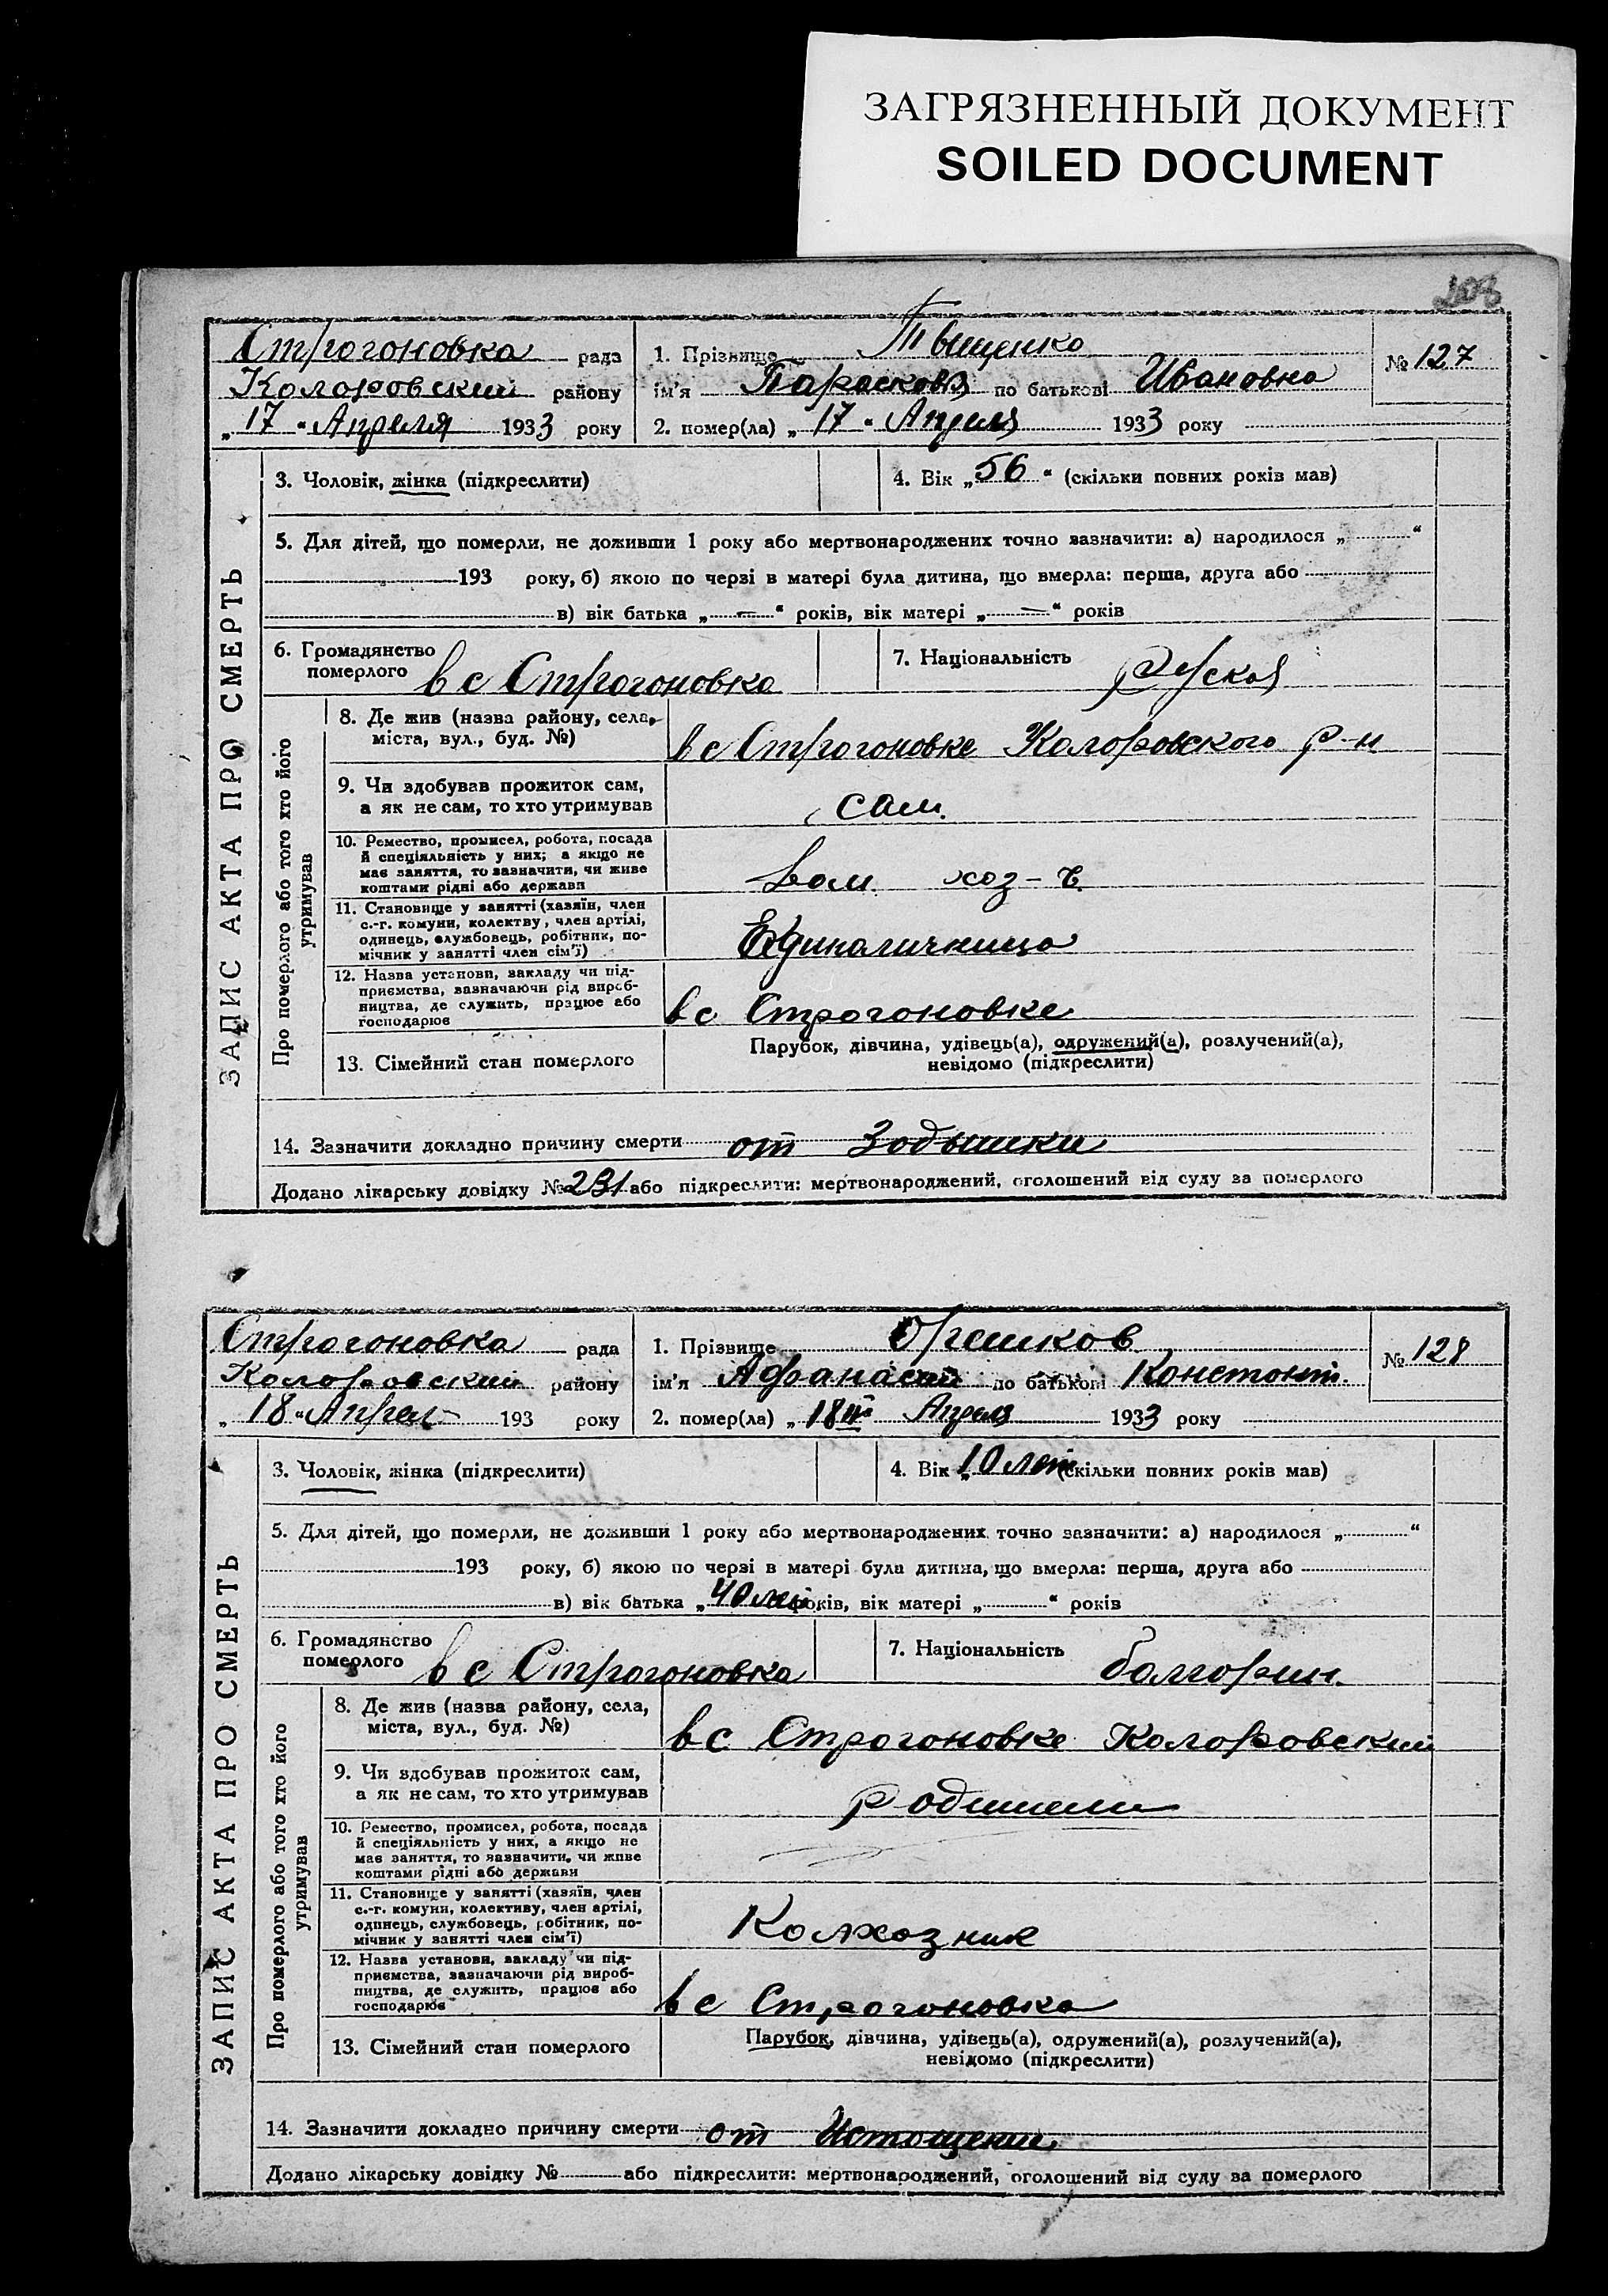 ЗАГРЯЗНЕННЫЙ ДОКУМЕНТ
SOILED DOCUMENT
208
Строгоновка рада
Коларовский району
„17 “ Апреля 1933 року
1. Прізвище Твищенко
ім'я Парасковя по батькові Ивановна
2. помер(ла) „ 17 “ Апреля 1933 року
№ 127
ЗАПИС АКТА ПРО СМЕРТЬ
3. Чоловік, жінка (підкреслити)
4. Вік „56“ (скільки повних років мав)
5. Для дітей, що померли, не доживши 1 року або мертвонароджених точно зазначити: а) народилося „ “
193 року, б) якою по черзі в матері була дитина, що вмерла: перша, друга або
в) вік батька „ — “ років, вік матері „ — “ років
6. Громадянство
померлого в с Строгоновка
7. Національність Руская
Про померлого або того хто його
утримував
8. Де жив (назва району, села,
міста, вул., буд. №)
в с Строгоновке Коларовского р-н
9. Чи здобував прожиток сам,
а як не сам, то хто утримував
сам.
10. Ремество, промисел, робота, посада
й спеціяльність у них; а якщо не
має заняття, то зазначити, чи живе
коштами рідні або держави
Дом. хоз-в.
11. Становище у занятті (хазяїн, член
с.-г. комуни, колектву, член артілі,
одинець, службовець, робітник, по-
мічник у занятті член сім'ї)
Единаличница
12. Назва установи, закладу чи під-
приємства, зазначаючи рід вироб-
ництва, де служить, працює або
господарює
в с Строгоновке
13. Сімейний стан померлого
Парубок, дівчина, удівець(а), одружений(а), розлучений(а),
невідомо (підкреслити)
14. Зазначити докладно причину смерти от Зодышки
Додано лікарську довідку №231 або підкреслити: мертвонароджений, оголошений від суду за померлого
Строгоновка рада
Коларовский району
„ 18 “ Апрел 193 року
1. Прізвище Орешков
ім'я Афанасий по батькові Констонт.
2. помер(ла) „ 18го Апреля 1933 року
№ 128
ЗАПИС АКТА ПРО СМЕРТЬ
3. Чоловік, жінка (підкреслити)
4. Вік „10 лет (скільки повних років мав)
5. Для дітей, що померли, не доживши 1 року або мертвонароджених точно зазначити: а) народилося „ “
193 року, б) якою по черзі в матері була дитина, що вмерла: перша, друга або
в) вік батька „40 лет років, вік матері „ “ років
6. Громадянство
померлого в с Строгоновка
7. Національність болгорин.
Про померлого або того хто його
утримував
8. Де жив (назва району, села,
міста, вул., буд. №)
в с. Строгоновке Коларовский
9. Чи здобував прожиток сам,
а як не сам, то хто утримував
родители
10. Ремество, промисел, робота, посада
й спеціяльність у них, а якщо не
має заняття, то зазначити, чи живе
коштами рідні або держави
11. Становище у занятті (хазяїн, член
с.-г. комуни, колективу, член артілі,
одинець, службовець, робітник, по-
мічник у занятті член сім'ї)
Колхозник
12. Назва установи, закладу чи під-
приємства, зазначаючи рід вироб-
ництва, де служить, працює або
господарює
в с Строгоновка
13. Сімейний стан померлого
Парубок, дівчина, удівець(а), одружений(а), розлучений(а),
невідомо (підкреслити)
14. Зазначити докладно причину смерти от Истощении
Додано лікарську довідку № або підкреслити: мертвонароджений, оголошений від суду за померлого